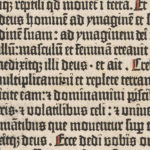 itqʒ reptili qḋ mouet̄ i terra. Et
deus homine ad ymagine et s
deus hoiem suam: ad ymaginem de
illū: masculū et feminā creauit
nedixitqʒ illi deus. et ait. Cre
multiplicamini et replete terram
eam: et dominamini pisci
s: et volatilibus celi: et vniu
imātibus que mouentur sup
itqʒ deus. Ecce dedi vobis o